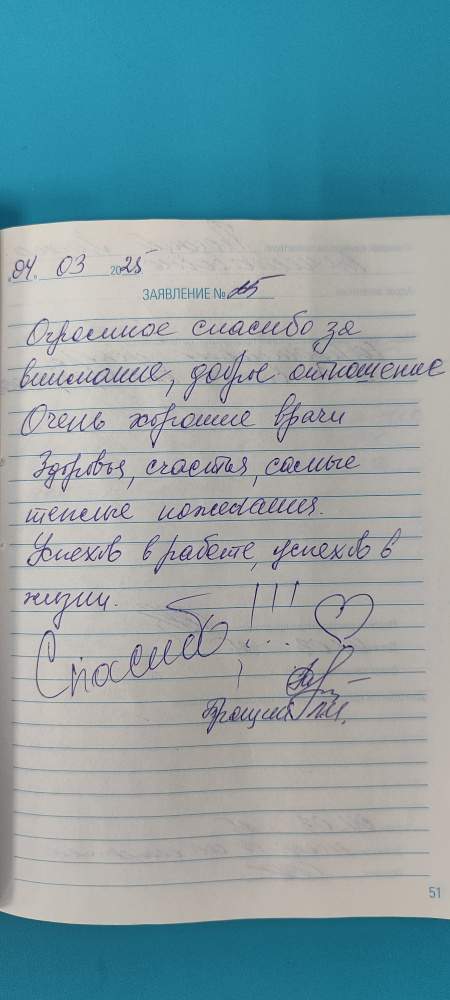 "04" 03 2025
ЗАЯВЛЕНИЕ № 15
Огромное спасибо за
внимание, доброе отношение
Очень хорошие врачи
Здоровья, счастья, самые
теплые пожелания.
Успехов в работе, успехов в
жизни.
Спасибо !!!
51